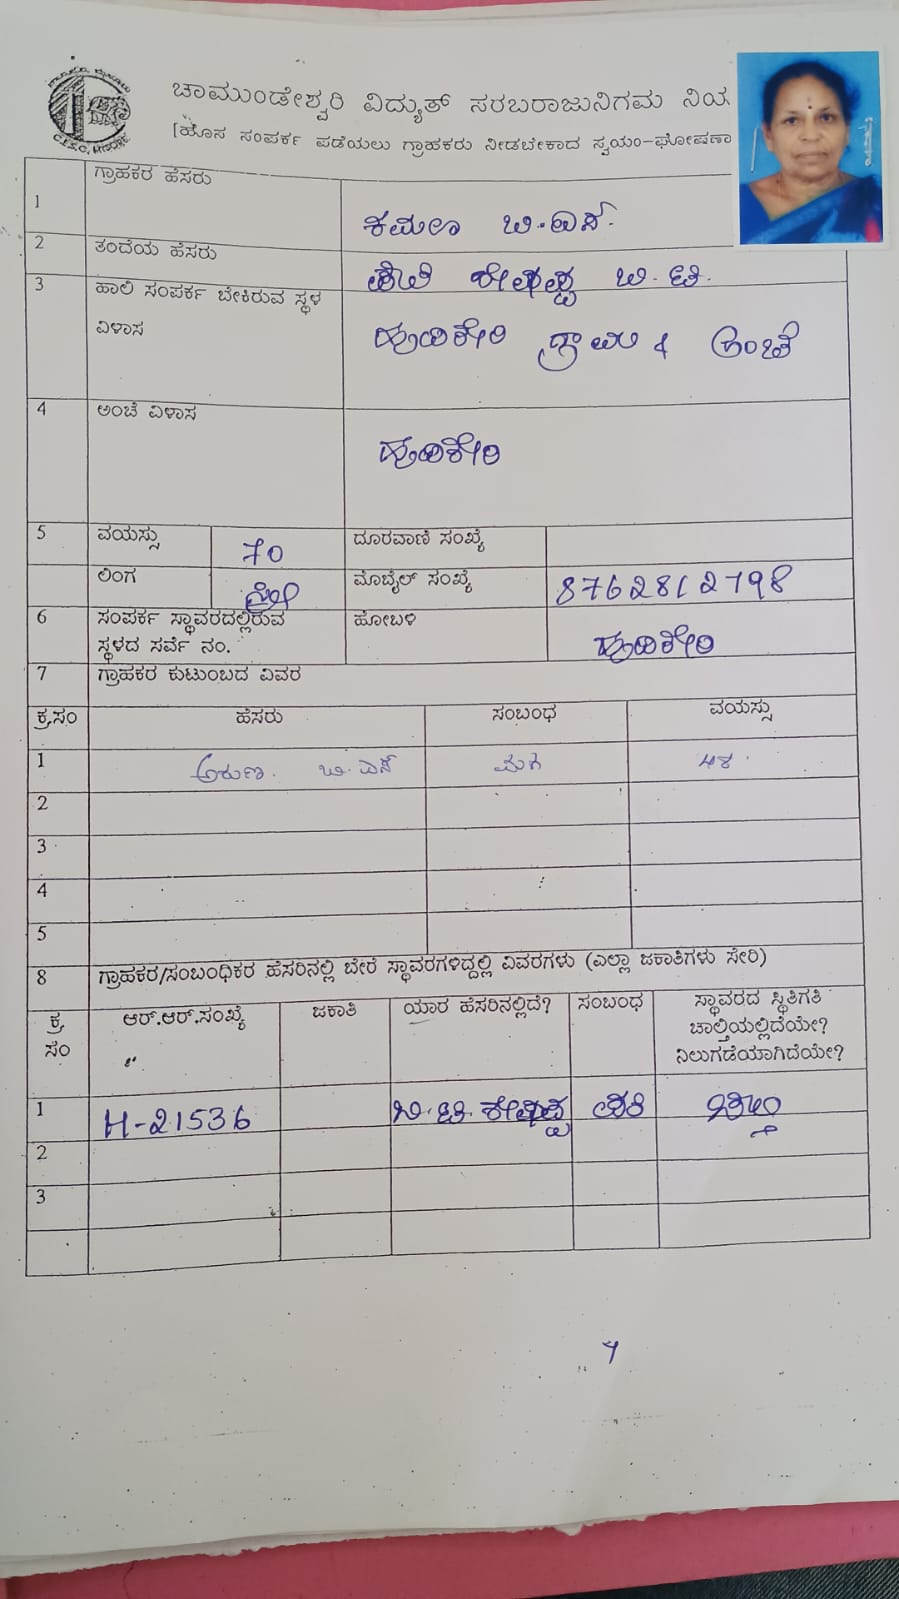 C.E.S.C, MYSORE
ಚಾಮುಂಡೇಶ್ವರಿ ವಿದ್ಯುತ್ ಸರಬರಾಜುನಿಗಮ ನಿಯ
[ಹೊಸ ಸಂಪರ್ಕ ಪಡೆಯಲು ಗ್ರಾಹಕರು ನೀಡಬೇಕಾದ ಸ್ವಯಂ-ಘೋಷಣಾ
1 ಗ್ರಾಹಕರ ಹೆಸರು ಕಮಲಾ ಬಿ.ಎನ್.
2 ತಂದೆಯ ಹೆಸರು ಬಿ.ಟಿ.
3 ಹಾಲಿ ಸಂಪರ್ಕ ಬೇಕಿರುವ ಸ್ಥಳ
ವಿಳಾಸ ಹುದಿಕೇರಿ ಗ್ರಾಮ & ಅಂಚೆ
4 ಅಂಚೆ ವಿಳಾಸ ಹುದಿಕೇರಿ
5 ವಯಸ್ಸು 70 ದೂರವಾಣಿ ಸಂಖ್ಯೆ
ಲಿಂಗ ಸ್ತ್ರೀ ಮೊಬೈಲ್ ಸಂಖ್ಯೆ 8762812798
6 ಸಂಪರ್ಕ ಸ್ಥಾವರದಲ್ಲಿರುವ ಹೋಬಳಿ ಹುದಿಕೇರಿ
ಸ್ಥಳದ ಸರ್ವೆ ನಂ.
7 ಗ್ರಾಹಕರ ಕುಟುಂಬದ ವಿವರ
ಕ್ರ.ಸಂ ಹೆಸರು ಸಂಬಂಧ ವಯಸ್ಸು
1 ಅರುಣ ಬಿ.ಎನ್ ಮಗ
2
3
4
5
8 ಗ್ರಾಹಕರ/ಸಂಬಂಧಿಕರ ಹೆಸರಿನಲ್ಲಿ ಬೇರೆ ಸ್ಥಾವರಗಳಿದ್ದಲ್ಲಿ ವಿವರಗಳು (ಎಲ್ಲಾ ಜಕಾತಿಗಳು ಸೇರಿ)
ಕ್ರ ಆರ್.ಆರ್.ಸಂಖ್ಯೆ ಜಕಾತಿ ಯಾರ ಹೆಸರಿನಲ್ಲಿದೆ? ಸಂಬಂಧ ಸ್ಥಾವರದ ಸ್ಥಿತಿಗತಿ
ಸಂ ಚಾಲ್ತಿಯಲ್ಲಿದೆಯೇ?
ನಿಲುಗಡೆಯಾಗಿದೆಯೇ?
1 H-21536 ಬಿ.ಟಿ.
2
3